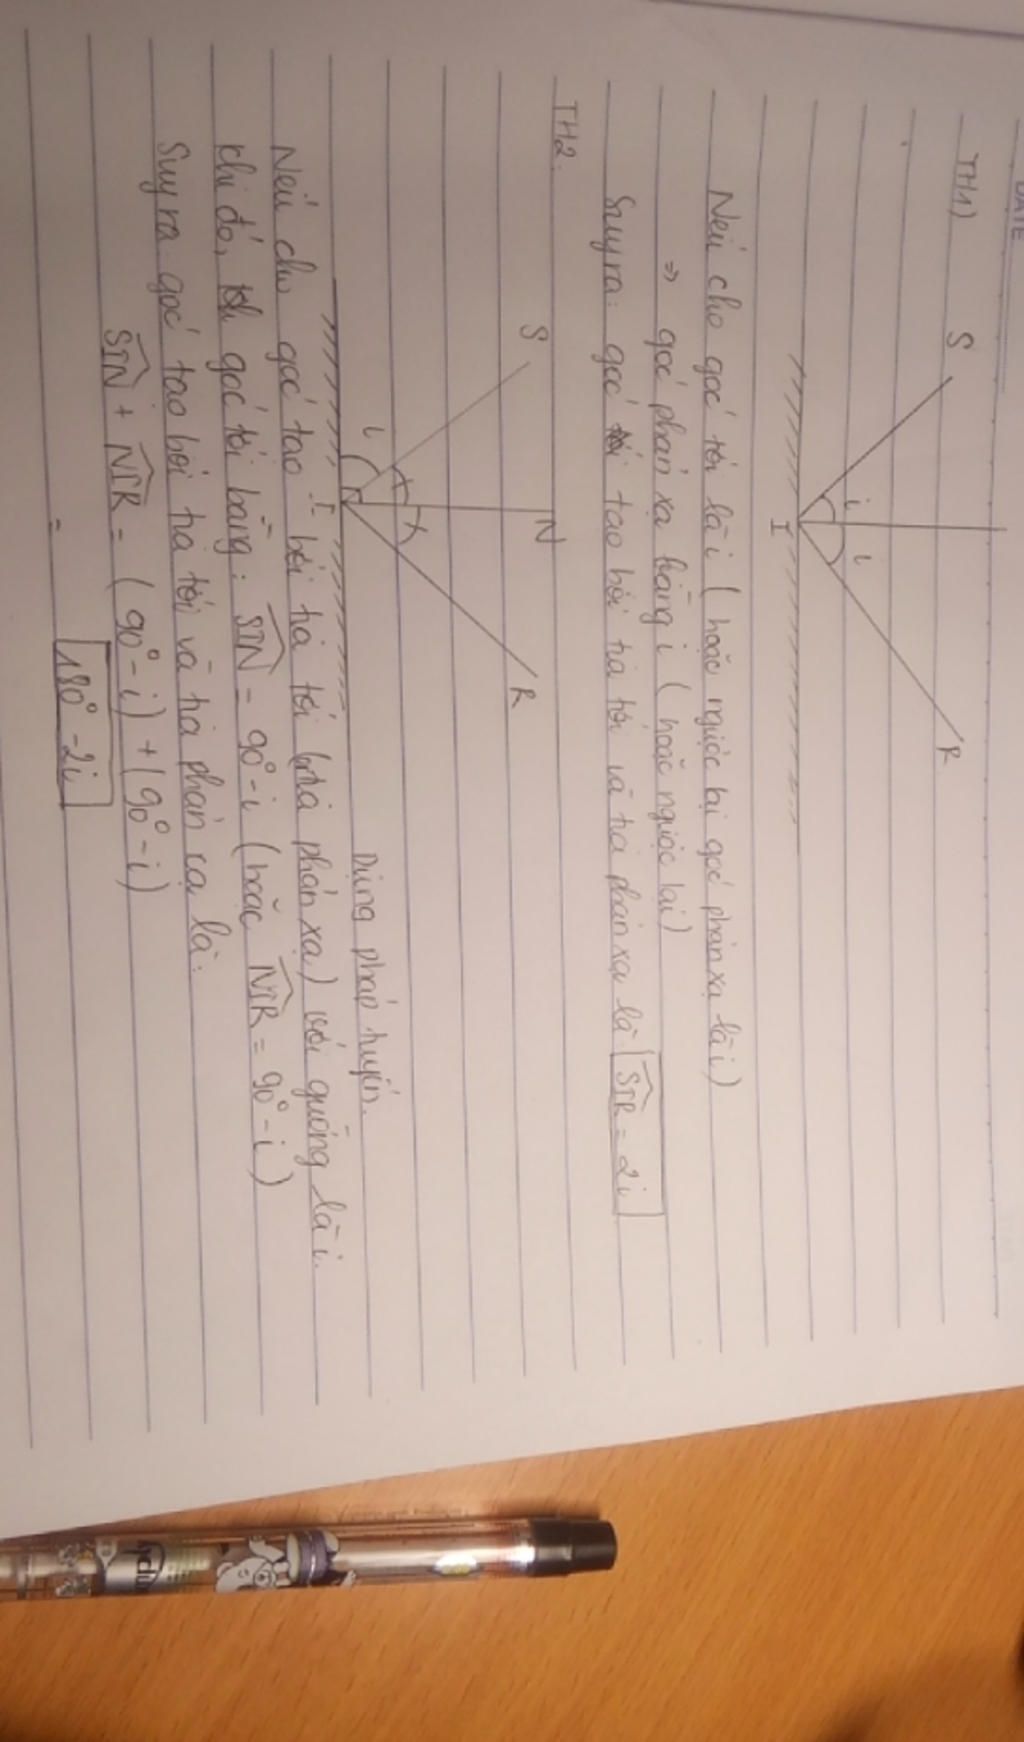 DATE
TH1)
S
R
i
i
I
Nếu cho góc tới là i (hoặc ngược lại góc phản xạ là i)
=> góc phản xạ bằng i (hoặc ngược lại)
Suy ra: góc tạo bởi tia tới và tia phản xạ là SIR = 2i
TH2:
N
S
R
i
I
Dùng pháp tuyến.
Nếu cho góc tạo bởi tia tới (tia phản xạ) với gương là i.
Khi đó, góc tới bằng: SIN = 90° - i (hoặc NIR = 90° - i)
Suy ra góc tạo bởi tia tới và tia phản xạ là:
SIN + NIR = (90° - i) + (90° - i)
= 180° - 2i